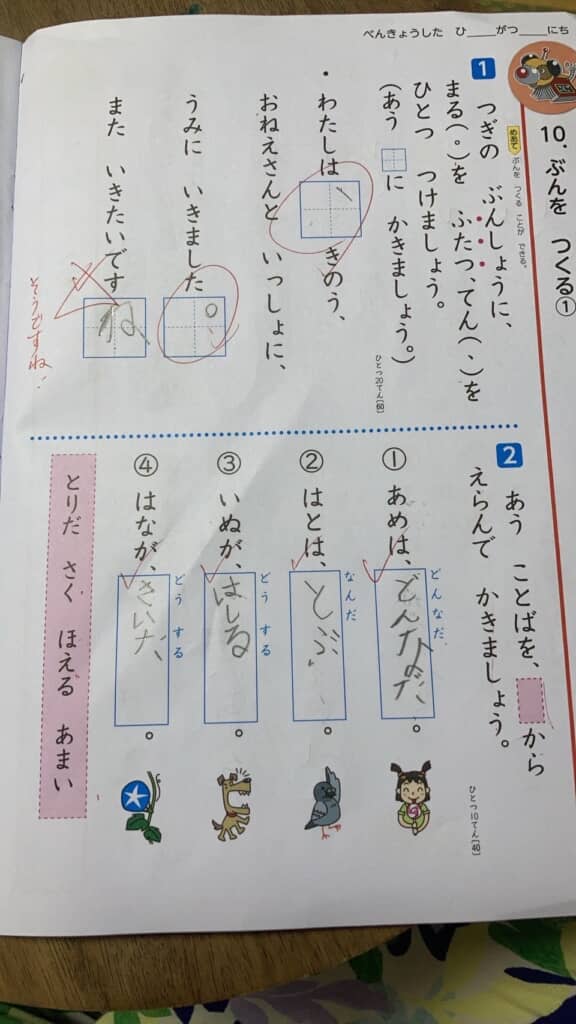 べんきょうした　ひ____がつ____にち
10. ぶんを　つくる①
めあて　ぶんを　つくる　ことが　できる。
1
つぎの　ぶんしょうに、
まる(。)を　ふたつ、てん(、)を
ひとつ　つけましょう。
(あう　に　かきましょう。)
ひとつ20てん[60]
・わたしは、きのう、
おねえさんと　いっしょに、
うみに　いきました。
また　いきたいですね
そうですね!
2
あう　ことばを、から
えらんで　かきましょう。
ひとつ10てん[40]
① あめは、どんなだ。
どんなだ
② はとは、とぶ。
なんだ
③ いぬが、はしる。
どう　する
④ はなが、きいだ。
どう　する
とりだ　さく　ほえる　あまい